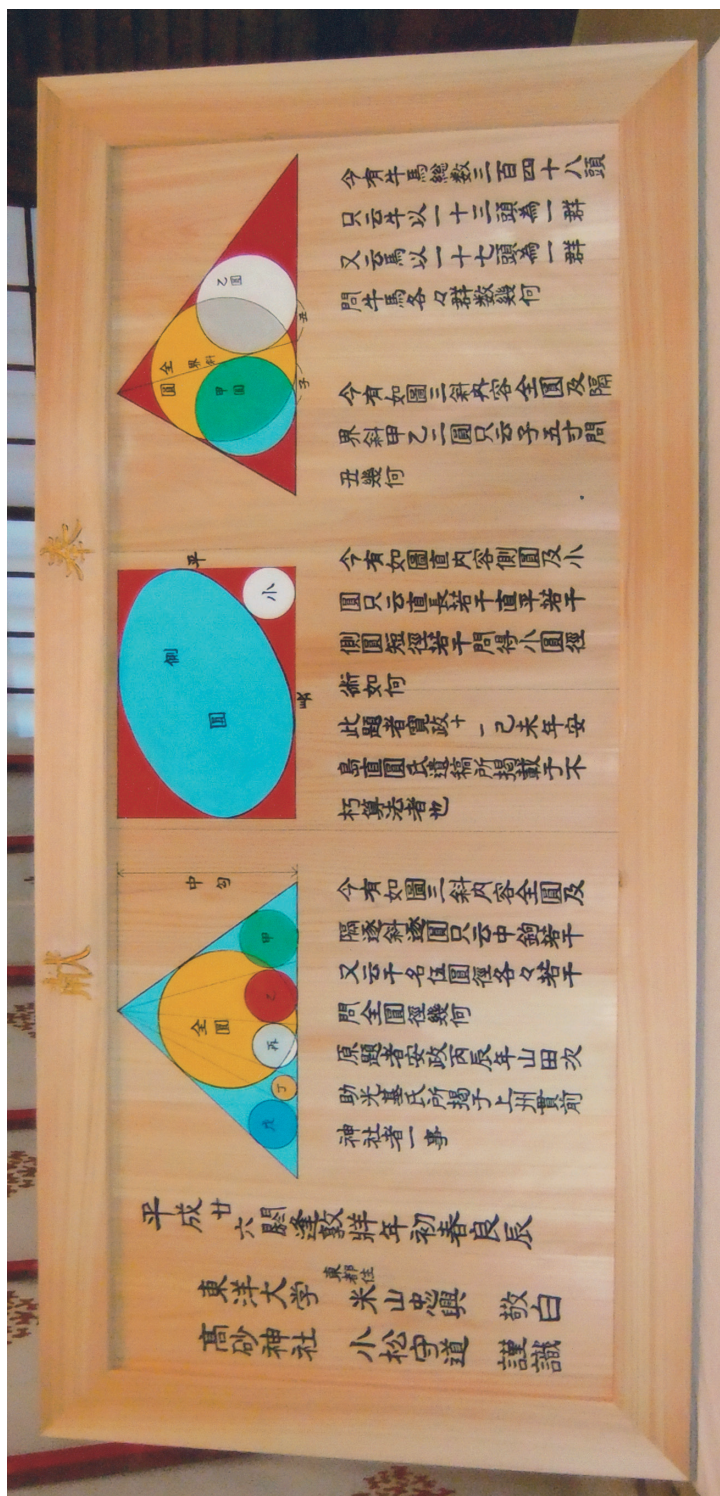 奉献
今有牛馬総数三百四十八頭
只云牛以一十三頭為一群
又云馬以一十七頭為一群
問牛馬各々群数幾何
乙圓
全圓
界斜
甲圓
丑
子
今有如圖三斜内容全圓及隔
界斜甲乙二圓只云子五寸問
丑幾何
平
小
側圓
長
今有如圖直内容側圓及小
圓只云直長若干直平若干
側圓短徑若干問得小圓徑
術如何
此題者寛政十一己未年安
島直圓氏遺稿所掲載于不
朽算法者也
中勾
甲
乙
全圓
丙
丁
戊
今有如圖三斜内容全圓及
隔逐斜逐圓只云中鉤若干
又云干名伍圓徑各々若干
問全圓徑幾何
原題者安政丙辰年山田次
助光基氏所掲于上州貫前
神社者一事
平成廿六閼逢敦牂年初春良辰
東洋大学 東都住 米山忠興 敬白
高砂神社 小松守道 謹識